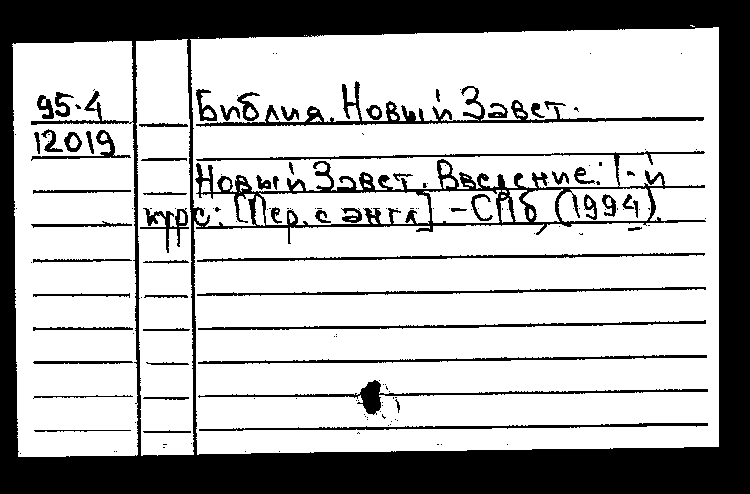 95.4
12019
Библия. Новый Завет.
Новый Завет. Введение: 1-й
курс: [Пер. с англ]. - СПб, (1994).